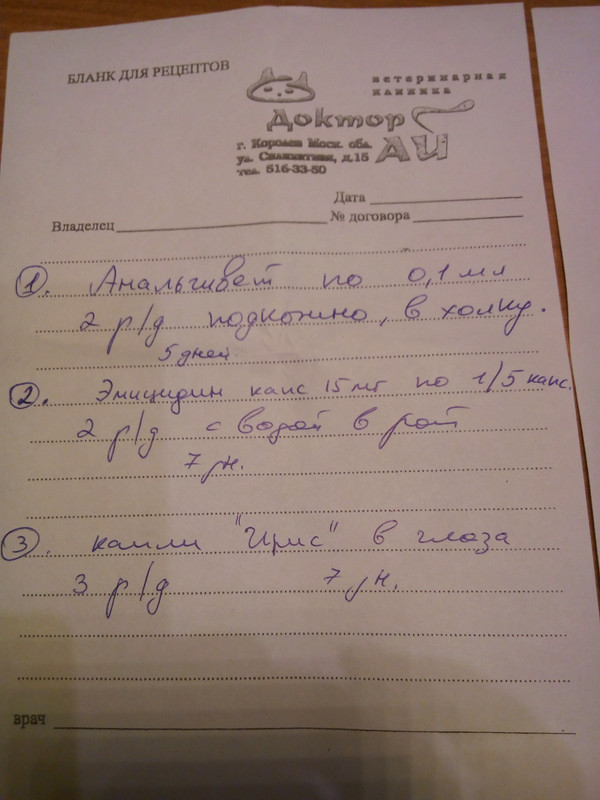 БЛАНК ДЛЯ РЕЦЕПТОВ
ветеринарная
клиника
Доктор
АЙ
г. Королев Моск. обл.
ул. Силикатная, д.15
тел. 516-33-50
Дата
Владелец № договора
1. Анальгивет по 0,1 мл
2 р/д подкожно, в холку.
5 дней
2. Эмицидин капс 15 мг по 1/5 капс.
2 р/д с водой в рот
7 дн.
3. капли "Ирис" в глаза
3 р/д 7 дн.
врач